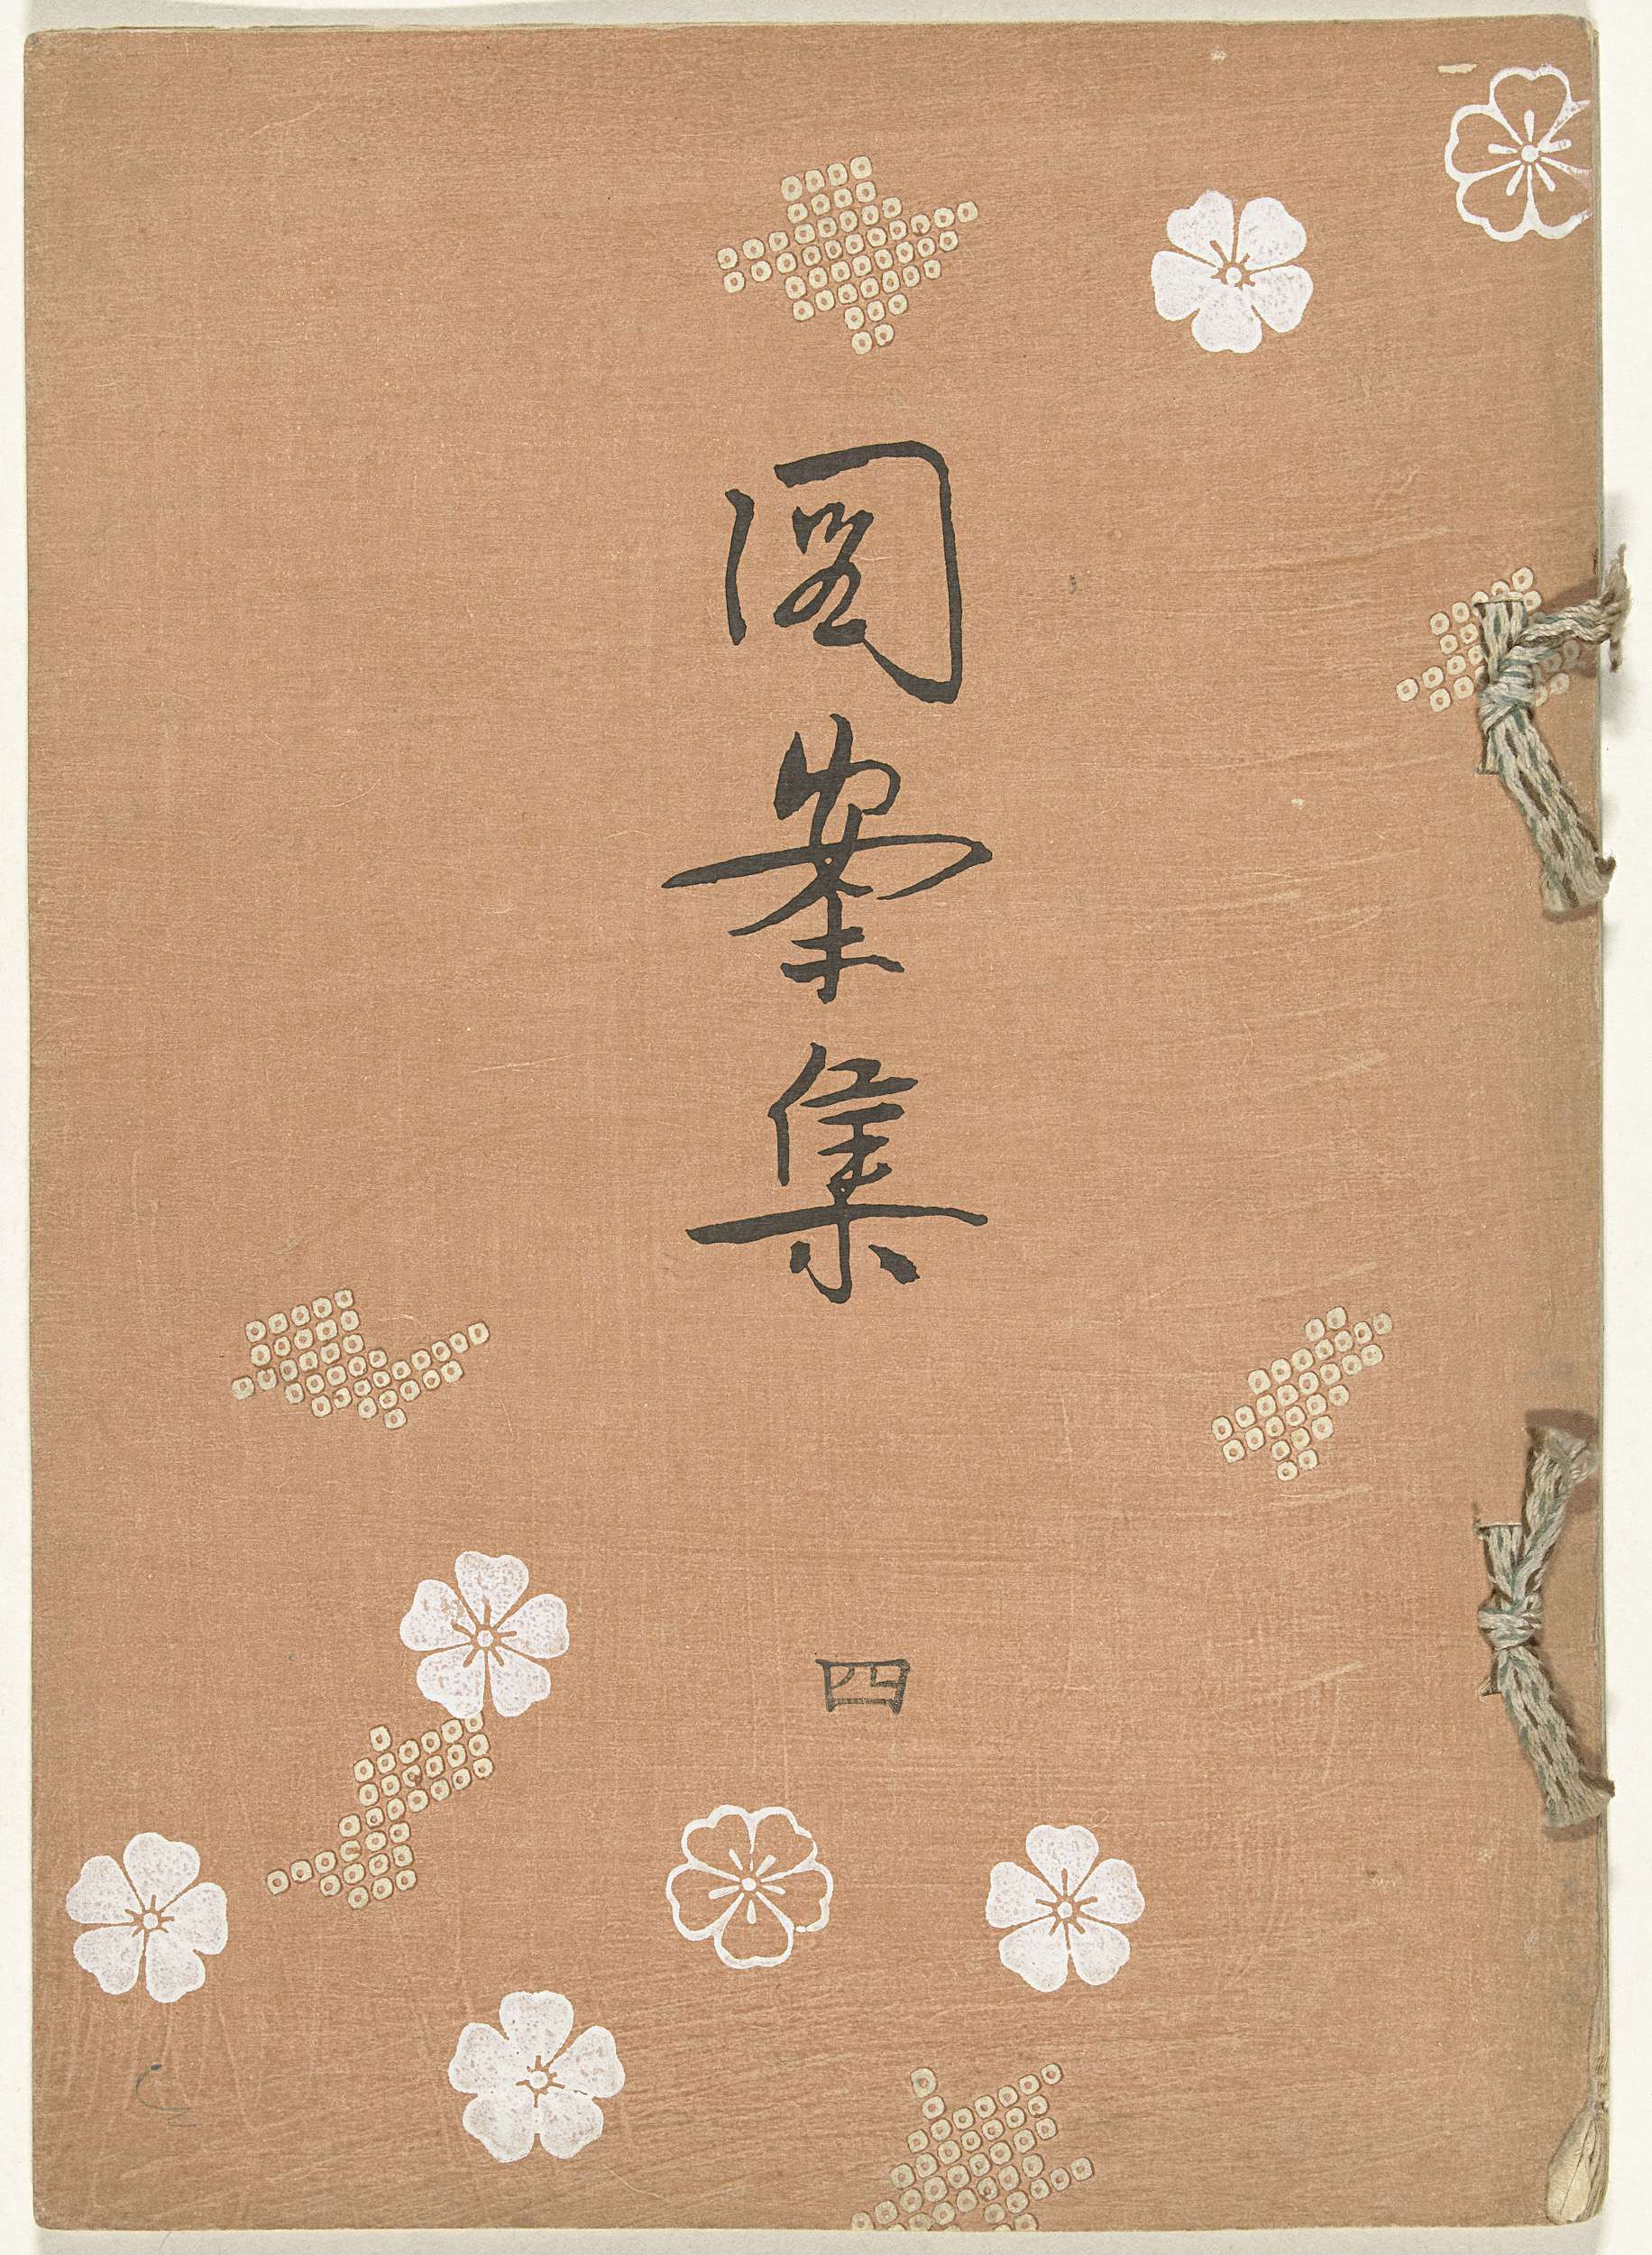 圖案集
四